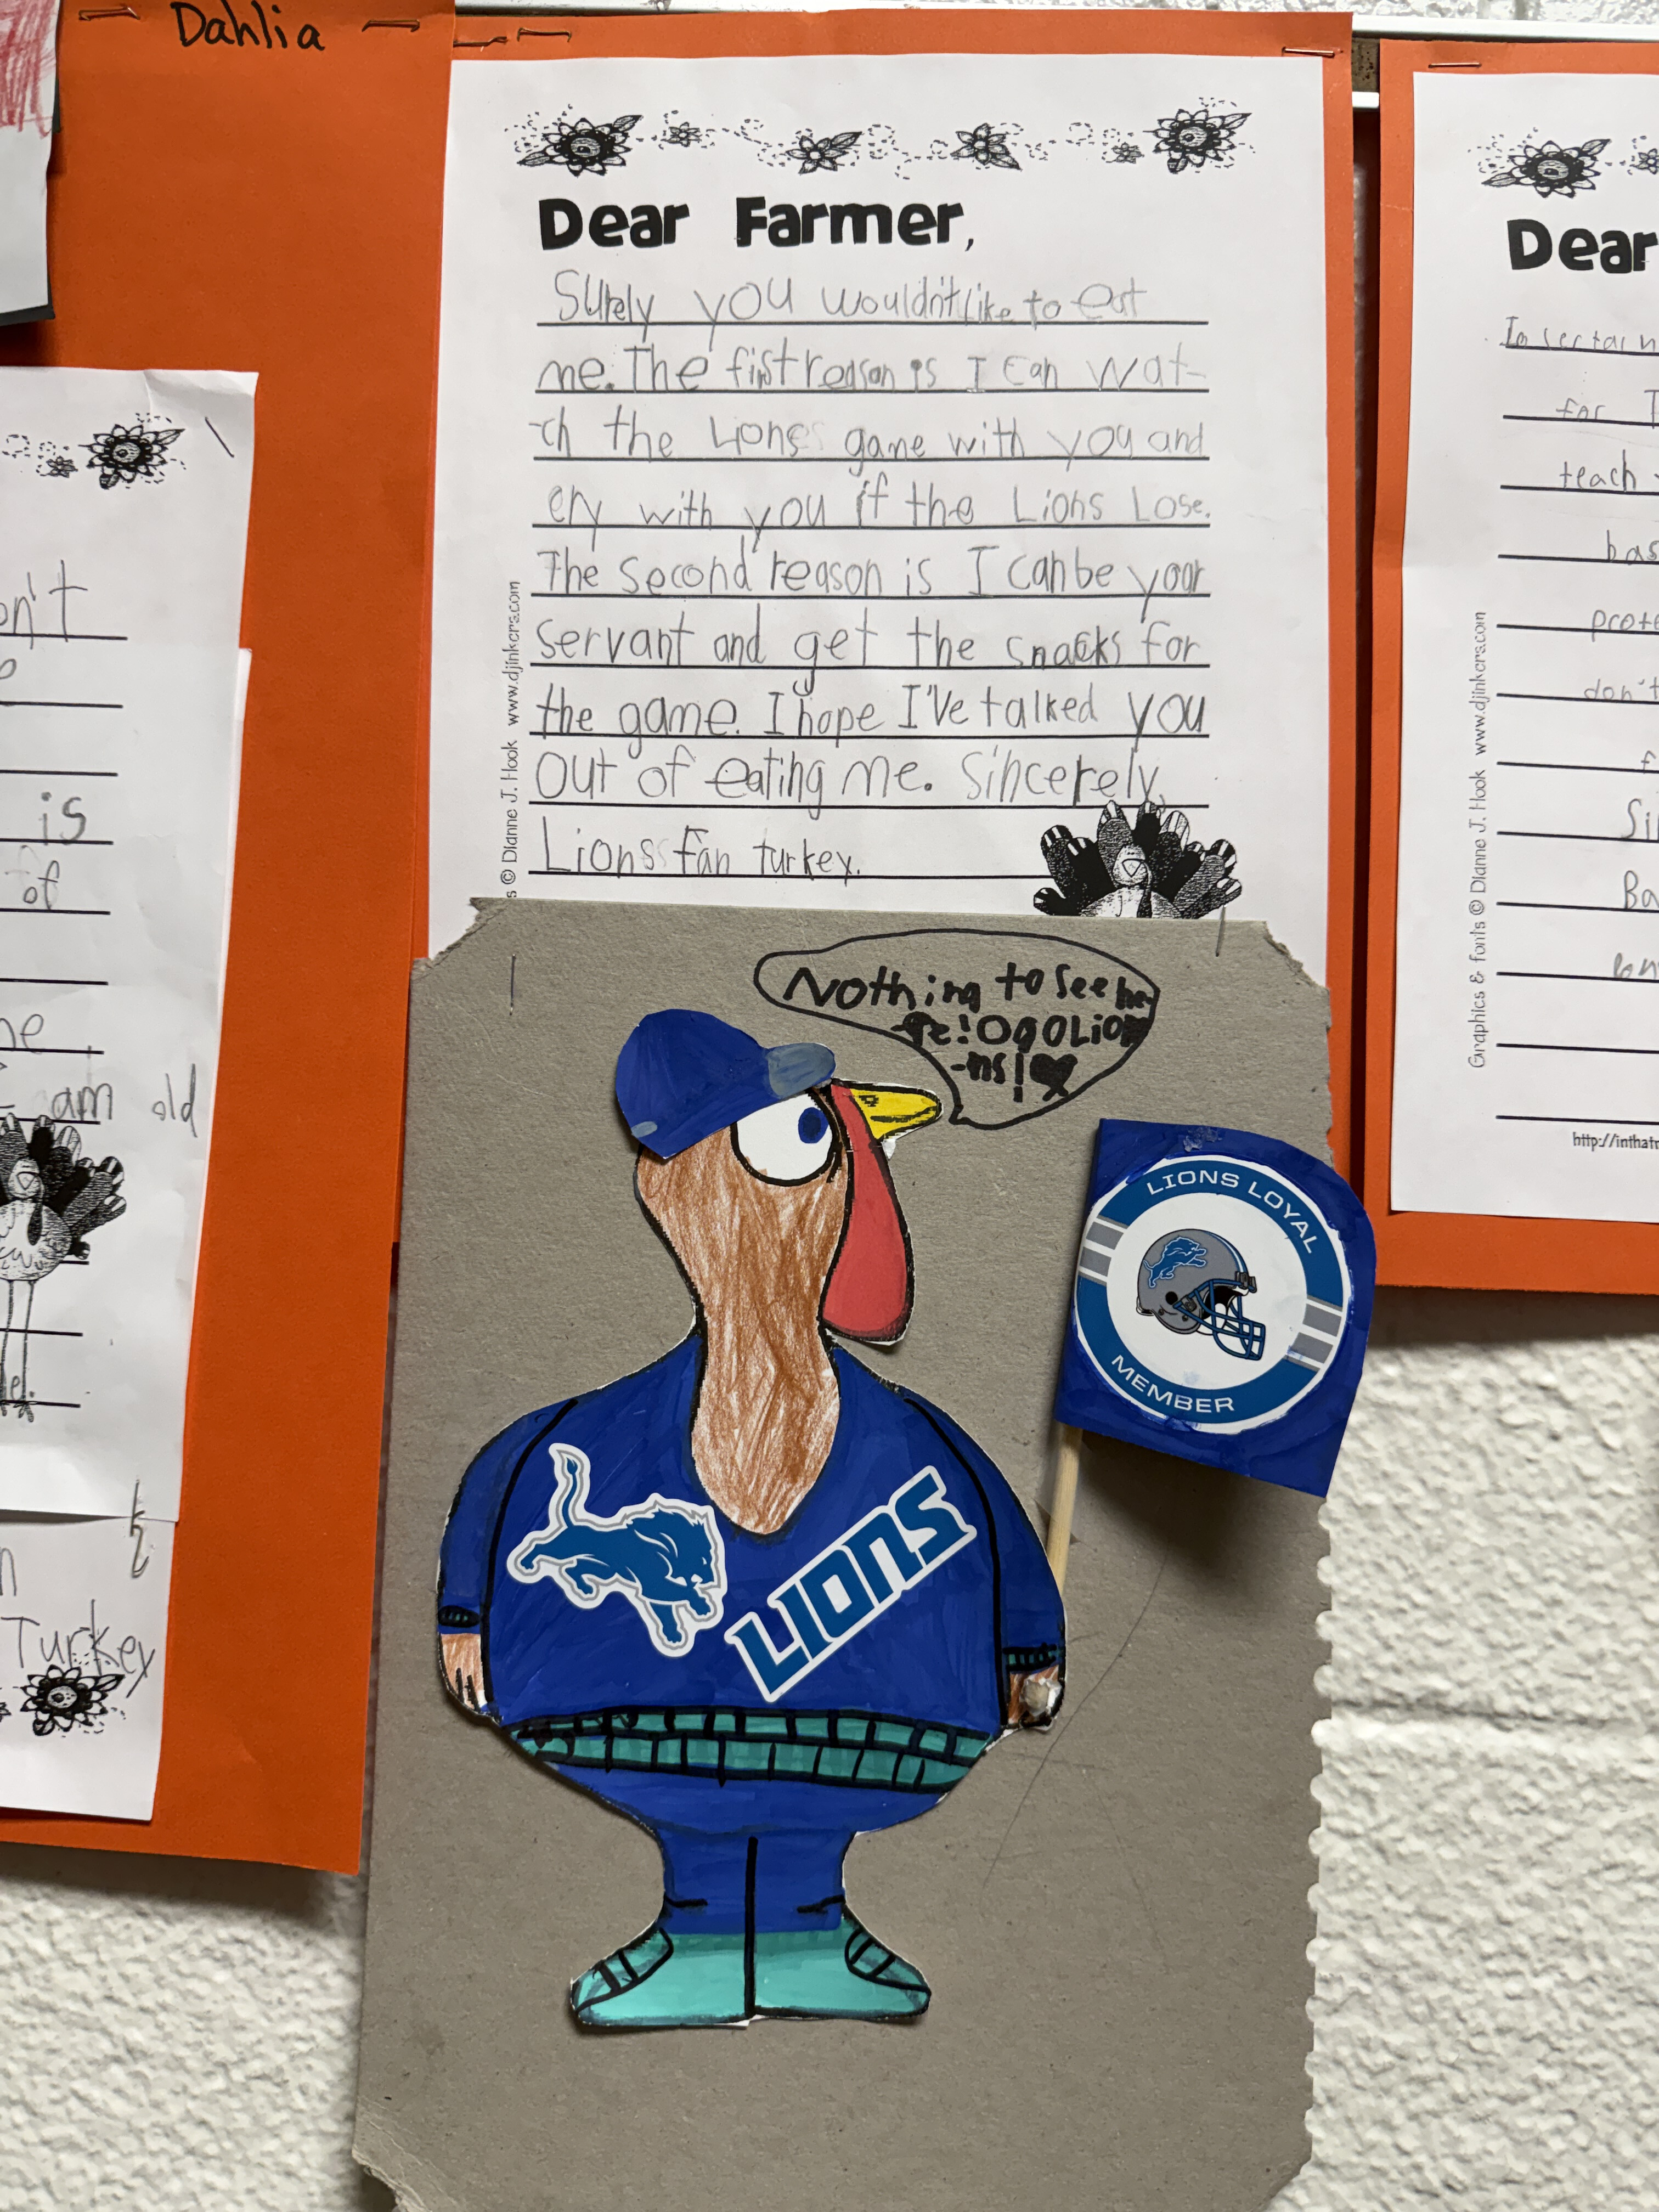 Dahlia
Dear Farmer,
Surely you wouldn't Like to eat
me. The first reason is I can wat-
ch the Lions game with you and
cry with you if the Lions Lose.
The second reason is I can be your
servant and get the snacks for
the game. I hope I've talked you
out of eating me. Sincerely,
Lions fan turkey.
s © Dianne J. Hook www.djinkers.com
Nothing to see he-
re! OgO Lio
-ns!
LIONS LOYAL
MEMBER
LIONS
on't
is
of
me
am old
Turkey
Dear
for I
teach
bas
prote
don't
f
Si
Ba
Graphics & fonts © Dianne J. Hook www.djinkers.com
http://inthat